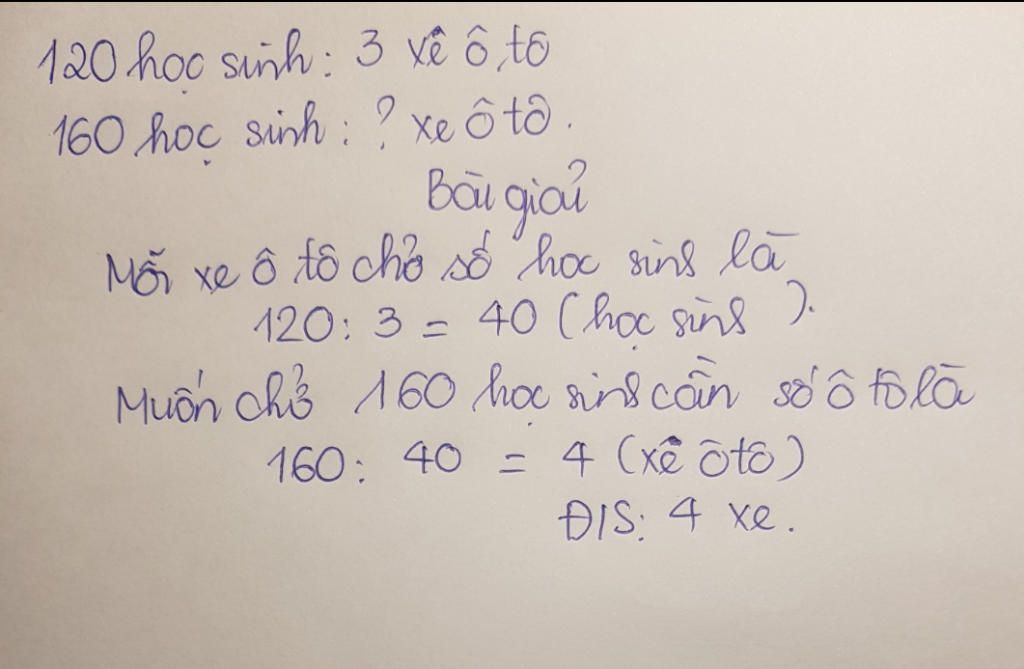 120 học sinh: 3 xê ô tô
160 học sinh: ? xe ô tô.
Bài giải
Mỗi xe ô tô chở số học sinh là
120: 3 = 40 (học sinh).
Muốn chở 160 học sinh cần số ô tô là
160: 40 = 4 (xê ô tô)
Đ/S: 4 xe.